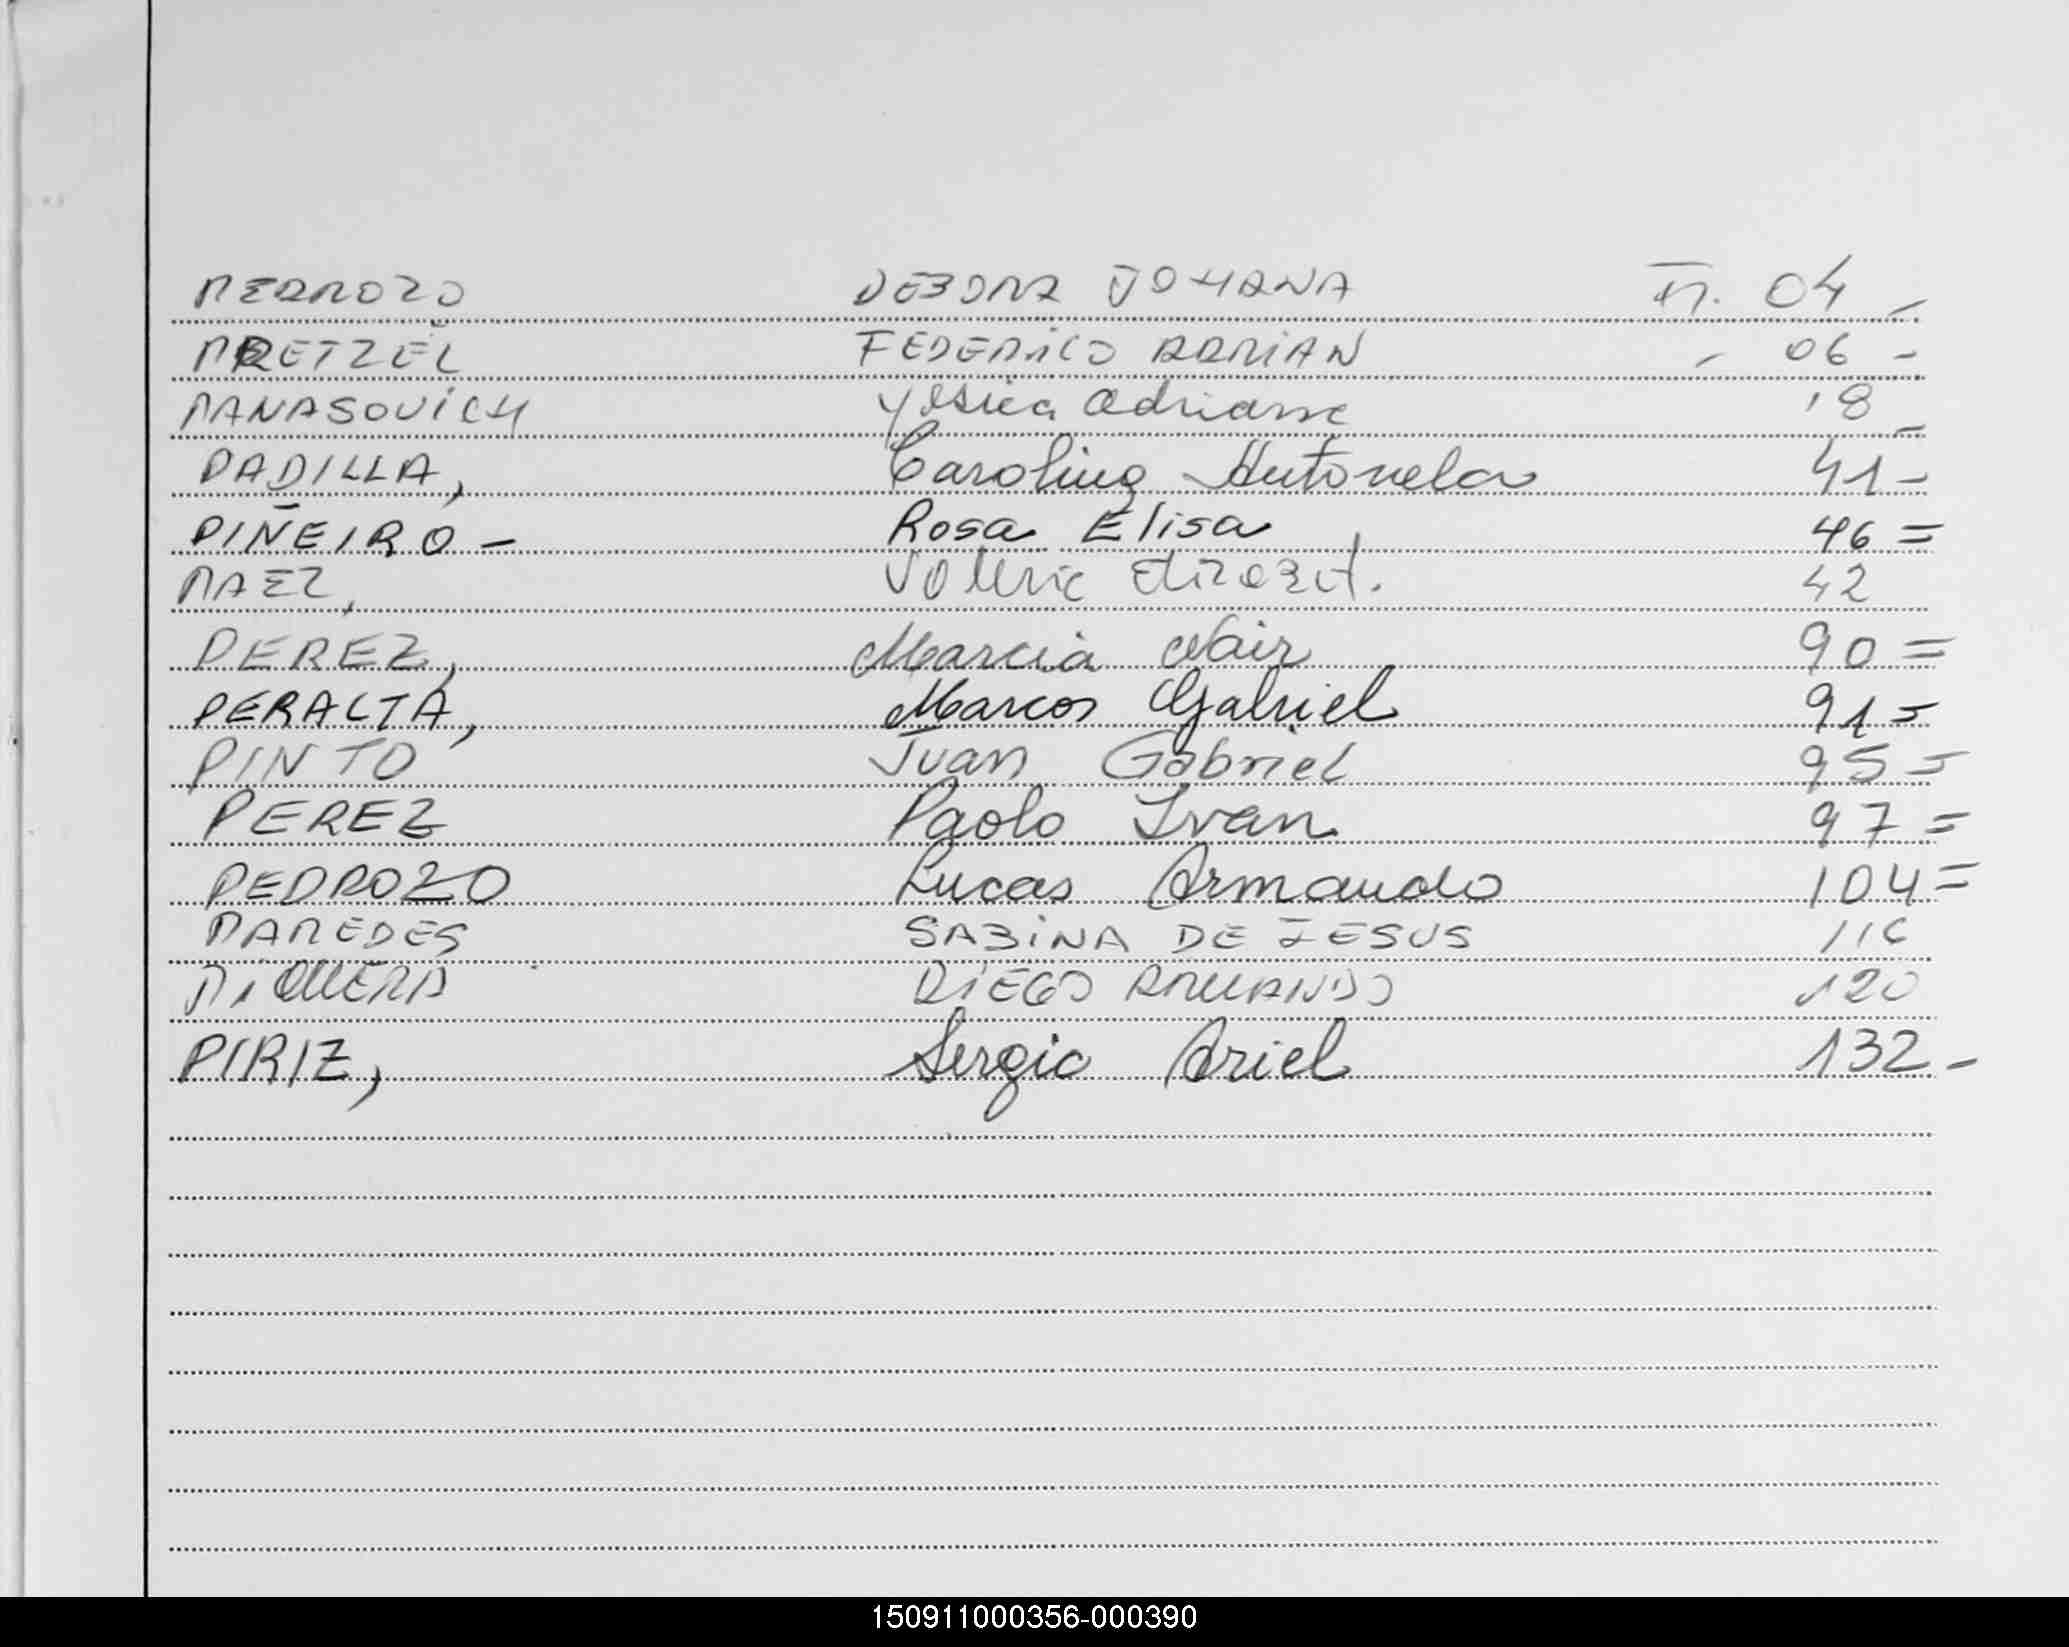 PEDROZO DEBORA JOHANA F. 04 -
PRETZEL FEDERICO ADRIAN - 06 -
PANASOVICH Yesica Adriana 18 -
PADILLA, Carolina Antonela 41 -
PIÑEIRO - Rosa Elisa 46 =
PAEZ, Valeria Elizabet. 42
PEREZ, Marcia Nair 90 =
PERALTA, Marcos Gabriel 91 =
PINTO Juan Gabriel 95 =
PEREZ Paolo Ivan 97 =
PEDROZO Lucas Armando 104 =
PAREDES SABINA DE JESUS 116
PIQUERA DIEGO ARMANDO 120
PIRIZ, Sergio Ariel 132 -
150911000356-000390